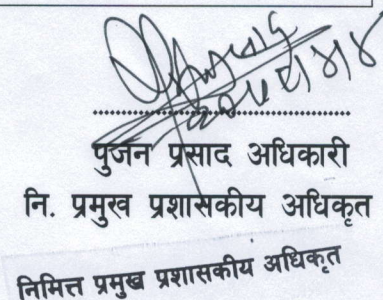 पुजन प्रसाद अधिकारी
नि. प्रमुख प्रशासकीय अधिकृत
निमित्त प्रमुख प्रशासकीय अधिकृत